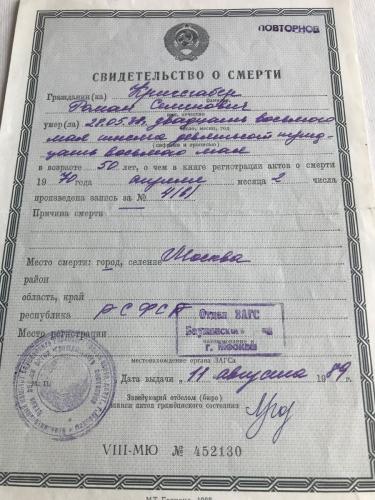 ПОВТОРНОЕ
СВИДЕТЕЛЬСТВО О СМЕРТИ
Гражданин(ка)
фамилия
Роман Семенович
имя, отчество
умер(ла) 28.05.38, двадцать восьмого
число, месяц, год
мая тысяча девятьсот трид-
(цифрами и прописью)
цать восьмого мая
в возрасте 50 лет, о чем в книге регистрации актов о смерти
1970 года апреля месяца 2 числа
произведена запись за №
Причина смерти
Место смерти: город, селение Москва
район
область, край
республика РСФСР
Место регистрации Отдел ЗАГС
г. Москвы
местонахождение органа ЗАГСа
М. П. Дата выдачи „11" августа 1989 г.
Заведующий отделом (бюро)
записи актов гражданского состояния
VIII-МЮ № 452130